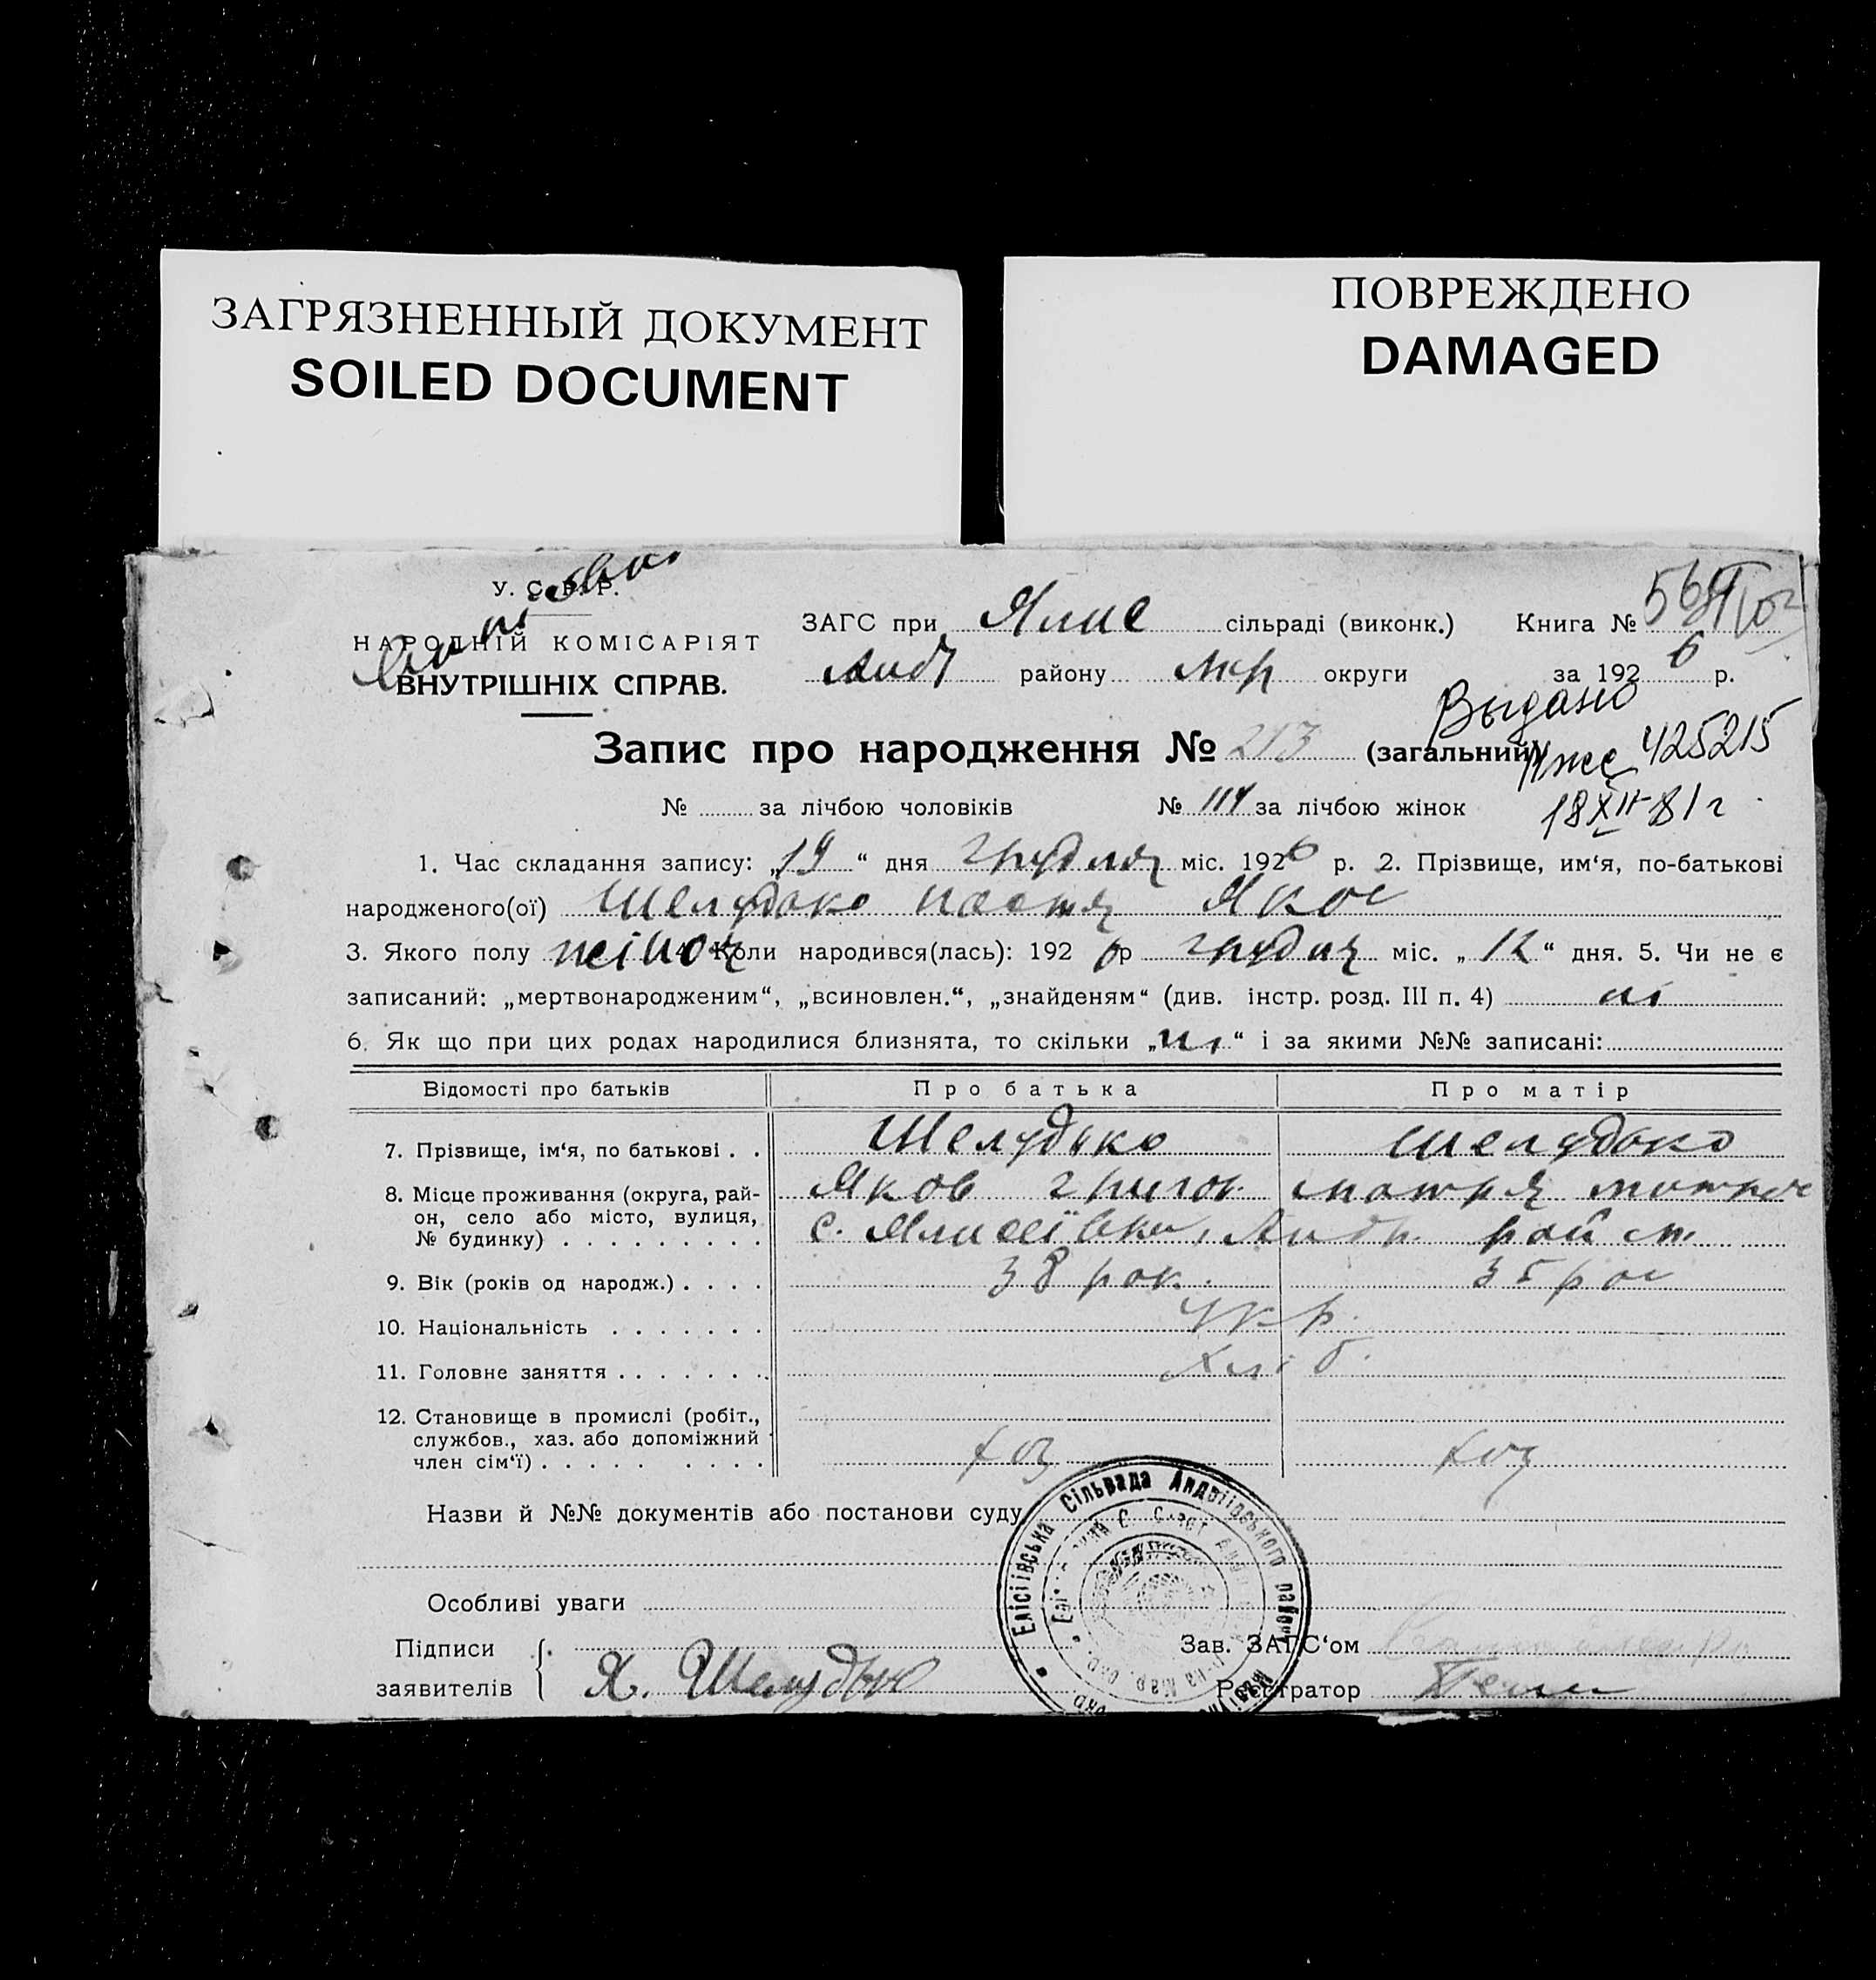 ЗАГРЯЗНЕННЫЙ ДОКУМЕНТ
SOILED DOCUMENT
ПОВРЕЖДЕНО
DAMAGED
У. С. Р. Р.
НАРОДНІЙ КОМІСАРІЯТ
ВНУТРІШНІХ СПРАВ.
ЗАГС при Ялис сільраді (виконк.) Книга №
Андр району Мар округи за 1926 р.
Выдано
Запис про народження № 213 (загальний) 425215
№ за лічбою чоловіків № 114 за лічбою жінок 18 XII 81 г
1. Час складання запису: „19“ дня грудня міс. 1926 р. 2. Прізвище, им‘я, по-батькові
народженого(ої) Шелудько Настя Яков
3. Якого полу жіноч 4. Коли народився(лась): 1926 р грудня міс. „12“ дня. 5. Чи не є
записаний: „мертвонародженим“, „всиновлен.“, „знайденям“ (див. інстр. розд. III п. 4) ні
6. Як що при цих родах народилися близнята, то скільки „ні“ і за якими №№ записані:
Відомості про батьків Про батька Про матір
7. Прізвище, ім‘я, по батькові . . Шелудько Шелудько
8. Місце проживання (округа, рай- Яков Григор Мотря
он, село або місто, вулиця, с. Ялисеївка, Андр. рай
№ будинку) . . . . . . . . .
9. Вік (років од народж.) . . . . 38 рок. 35 рок
10. Національність . . . . . . . Укр.
11. Головне заняття . . . . . . . Хліб.
12. Становище в промислі (робіт.,
службов., хаз. або допоміжний
член сім‘ї) . . . . . . . . . хоз хоз
Назви й №№ документів або постанови суду
Елісіївська Сільрада Андріівського району
Особливі уваги
Підписи Зав. ЗАГС‘ом
заявителів Я. Шелудько Реєстратор